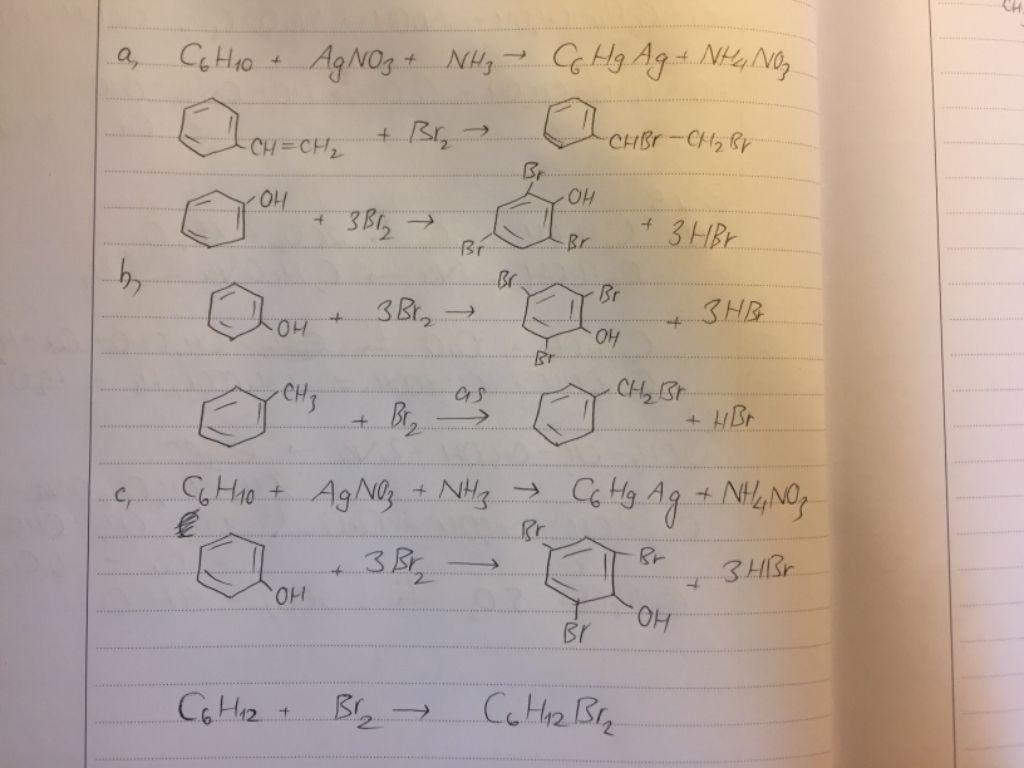 a, C6H10 + AgNO3 + NH3 → C6H9Ag + NH4NO3
CH=CH2 + Br2 → CHBr-CH2Br
OH + 3Br2 → Br OH Br Br + 3HBr
b, OH + 3Br2 → Br Br OH Br + 3HBr
CH3 + Br2 as → CH2Br + HBr
c, C6H10 + AgNO3 + NH3 → C6H9Ag + NH4NO3
OH + 3Br2 → Br Br OH Br + 3HBr
C6H12 + Br2 → C6H12Br2